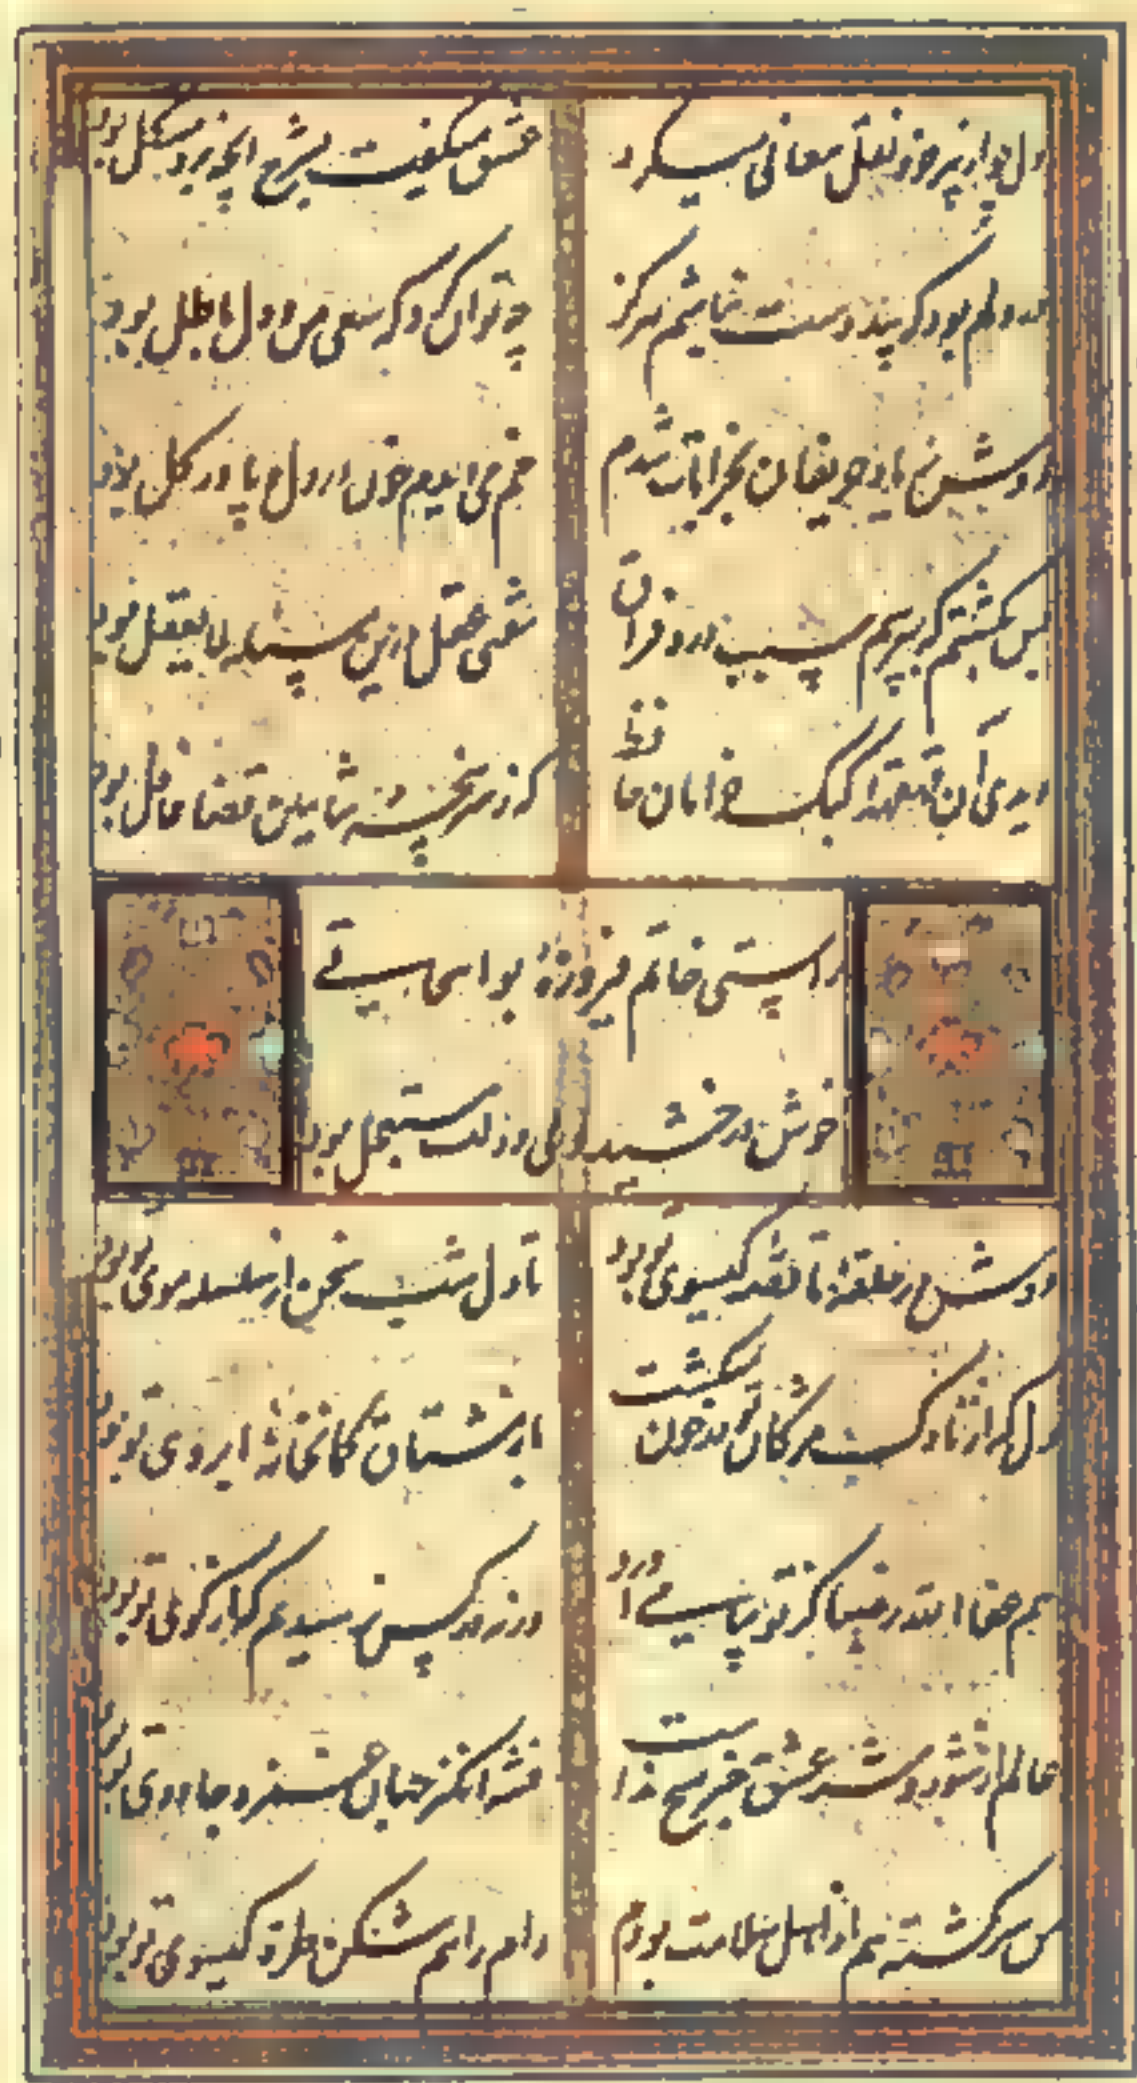 دل چو از پیر خرد نقل معانی میکرد
عشق میگفت بشرح آنچه برو مشکل بود
در دلم بود که بیدوست نباشم هرگز
چه توان کرد که سعی من و دل باطل بود
دوش بر یاد حریفان بخرابات شدم
خم می دیدم خون در دل پا در گل بود
بس بگشتم که بپرسم سبب درد فراق
مفتی عقل درین مسئله لا یعقل بود
دیدی آن قهقهه کبک خرامان حافظ
که ز سرپنجه شاهین قضا غافل بود
راستی خاتم فیروزهٔ بواسحاقی
خوش درخشید ولی دولت مستعجل بود
دوش در حلقهٔ ما قصه گیسوی تو بود
تا دل شب سخن از سلسله موی تو بود
دل که از ناوک مژگان تو در خون میگشت
باز مشتاق کمانخانهٔ ابروی تو بود
هم عفا الله صبا کز تو پیامی آورد
ورنه در کس نرسیدیم که از کوی تو بود
عالم از شور و شر عشق خبر هیچ نداشت
فتنه انگیز جهان غمزه جادوی تو بود
من سرگشته هم از اهل سلامت بودم
دام راهم شکن طره گیسوی تو بود